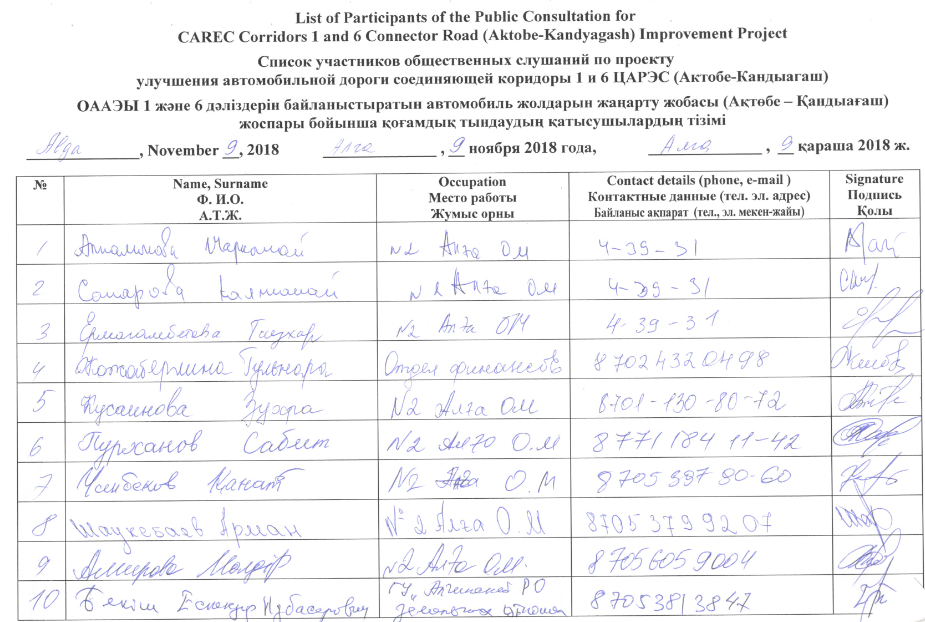 List of Participants of the Public Consultation for
CAREC Corridors 1 and 6 Connector Road (Aktobe-Kandyagash) Improvement Project
Список участников общественных слушаний по проекту
улучшения автомобильной дороги соединяющей коридоры 1 и 6 ЦАРЭС (Актобе-Кандыагаш)
ОААЭЫ 1 және 6 дәліздерін байланыстыратын автомобиль жолдарын жаңарту жобасы (Ақтөбе – Қандыағаш)
жоспары бойынша қоғамдық тыңдаудың қатысушылардың тізімі
, November 9, 2018 Алга, 9 ноября 2018 года, Алға, 9 қараша 2018 ж.
№ Name, Surname Occupation Contact details (phone, e-mail ) Signature
Ф. И.О. Место работы Контактные данные (тел. эл. адрес) Подпись
А.Т.Ж. Жұмыс орны Байланыс ақпарат (тел., эл. мекен-жайы) Қолы
1 №2 Алға ОМ 4-39-31
2 Сапарова №2 Алға ОМ 4-39-31
3 Ермагамбетова Гаухар №2 Алға ОМ 4-39-31
4 Кожабергина Гульнара Отдел финансов 87024320498
5 Кусаинова Зухра №2 Алға ОМ 8701-130-80-72
6 Нурханов Сабит №2 Алға О.М 8771 184 11-42
7 Канат №2 Алға О.М 8705 597 90-60
8 Шаукебаев Арман №2 Алға О.М 8705 379 92 07
9 Амирова Молдір №2 Алға ОМ. 87056059004
10 Бекіш Ескендір ГУ РО
земельных отношен 87053813847